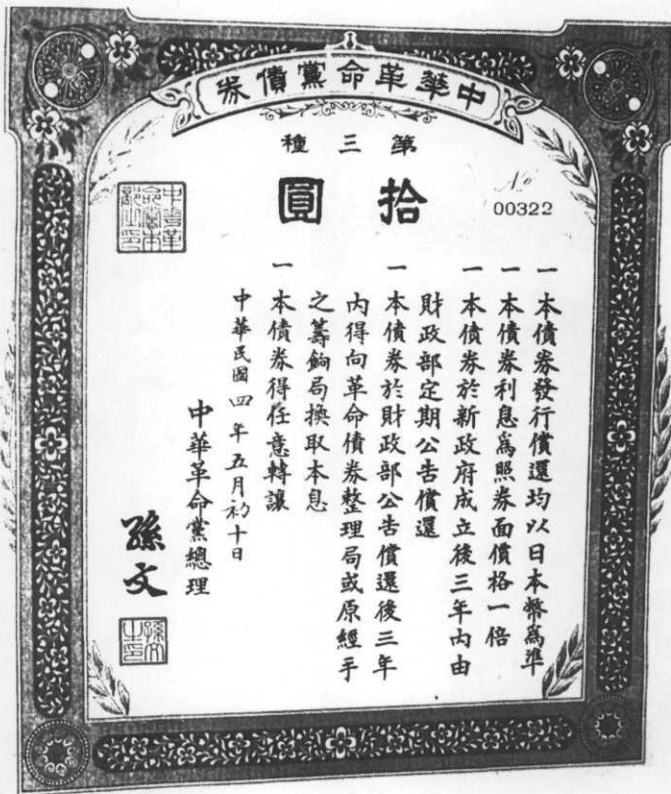 中華革命黨債券
第三種
拾圓
No
00322
一本債券發行償還均以日本幣爲準
一本債券利息爲照券面價格一倍
一本債券於新政府成立後三年內由
財政部定期公告償還
一本債券於財政部公告償還後三年
內得向革命債券整理局或原經手
之籌餉局換取本息
一本債券得任意轉讓
中華民國四年五月初十日
中華革命黨總理
孫文
中華革命黨本部之印
孫文之印